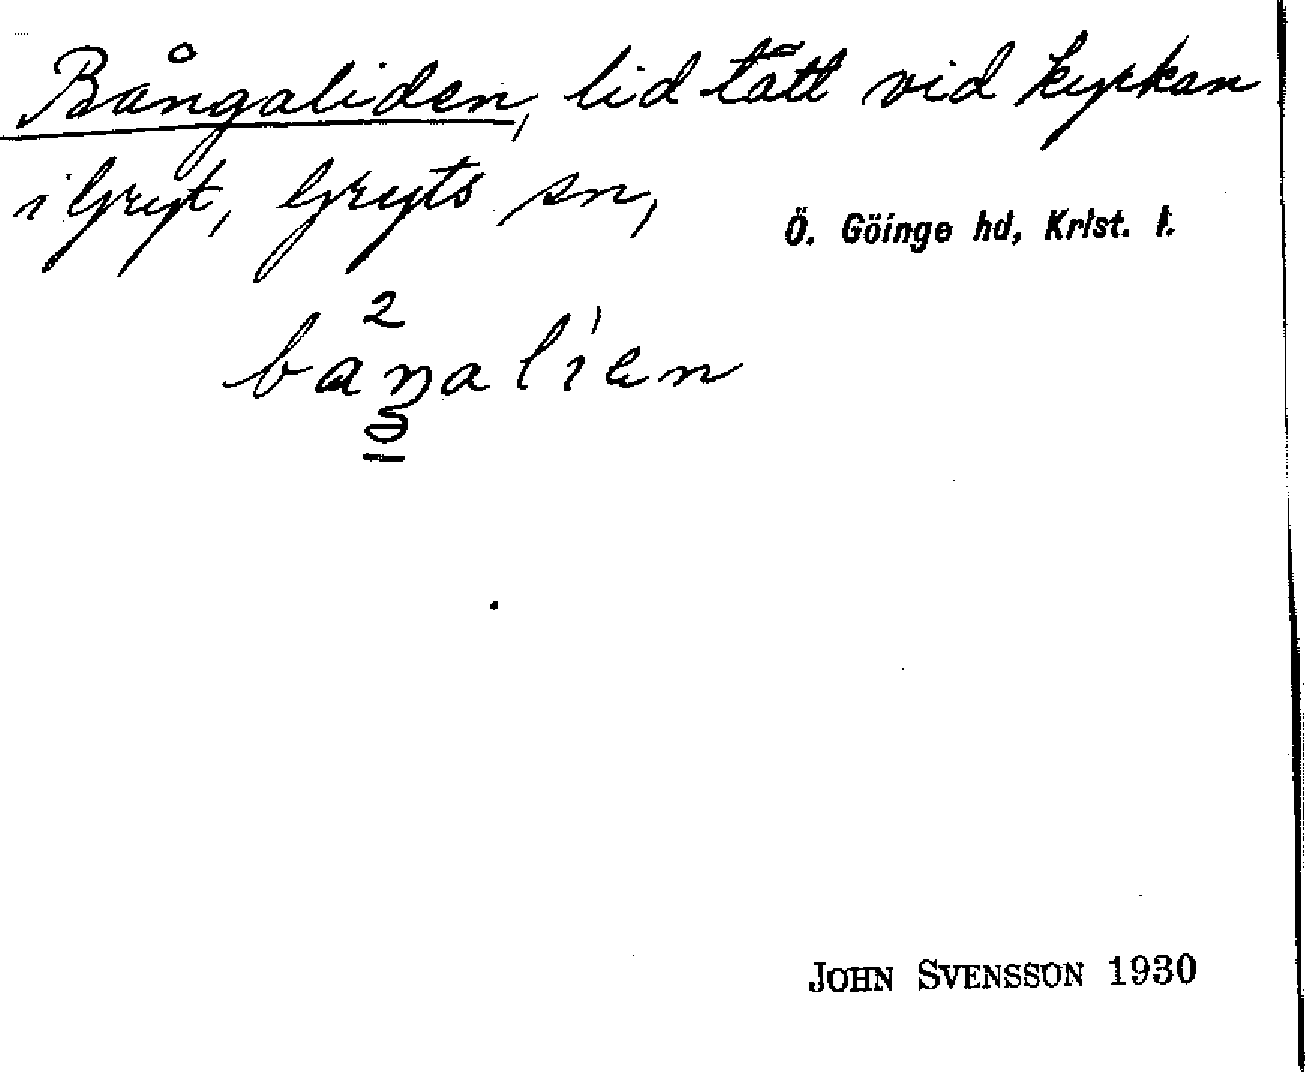 Bångaliden, lid tätt vid kyrkan
i Gryt, Gryts sn, Ö. Göinge hd, Krist. l.
JOHN SVENSSON 1930